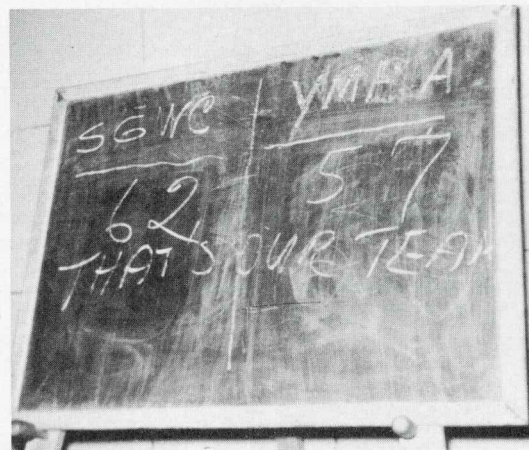 SGWC YMHA
62 57
THAT'S OUR TEAM